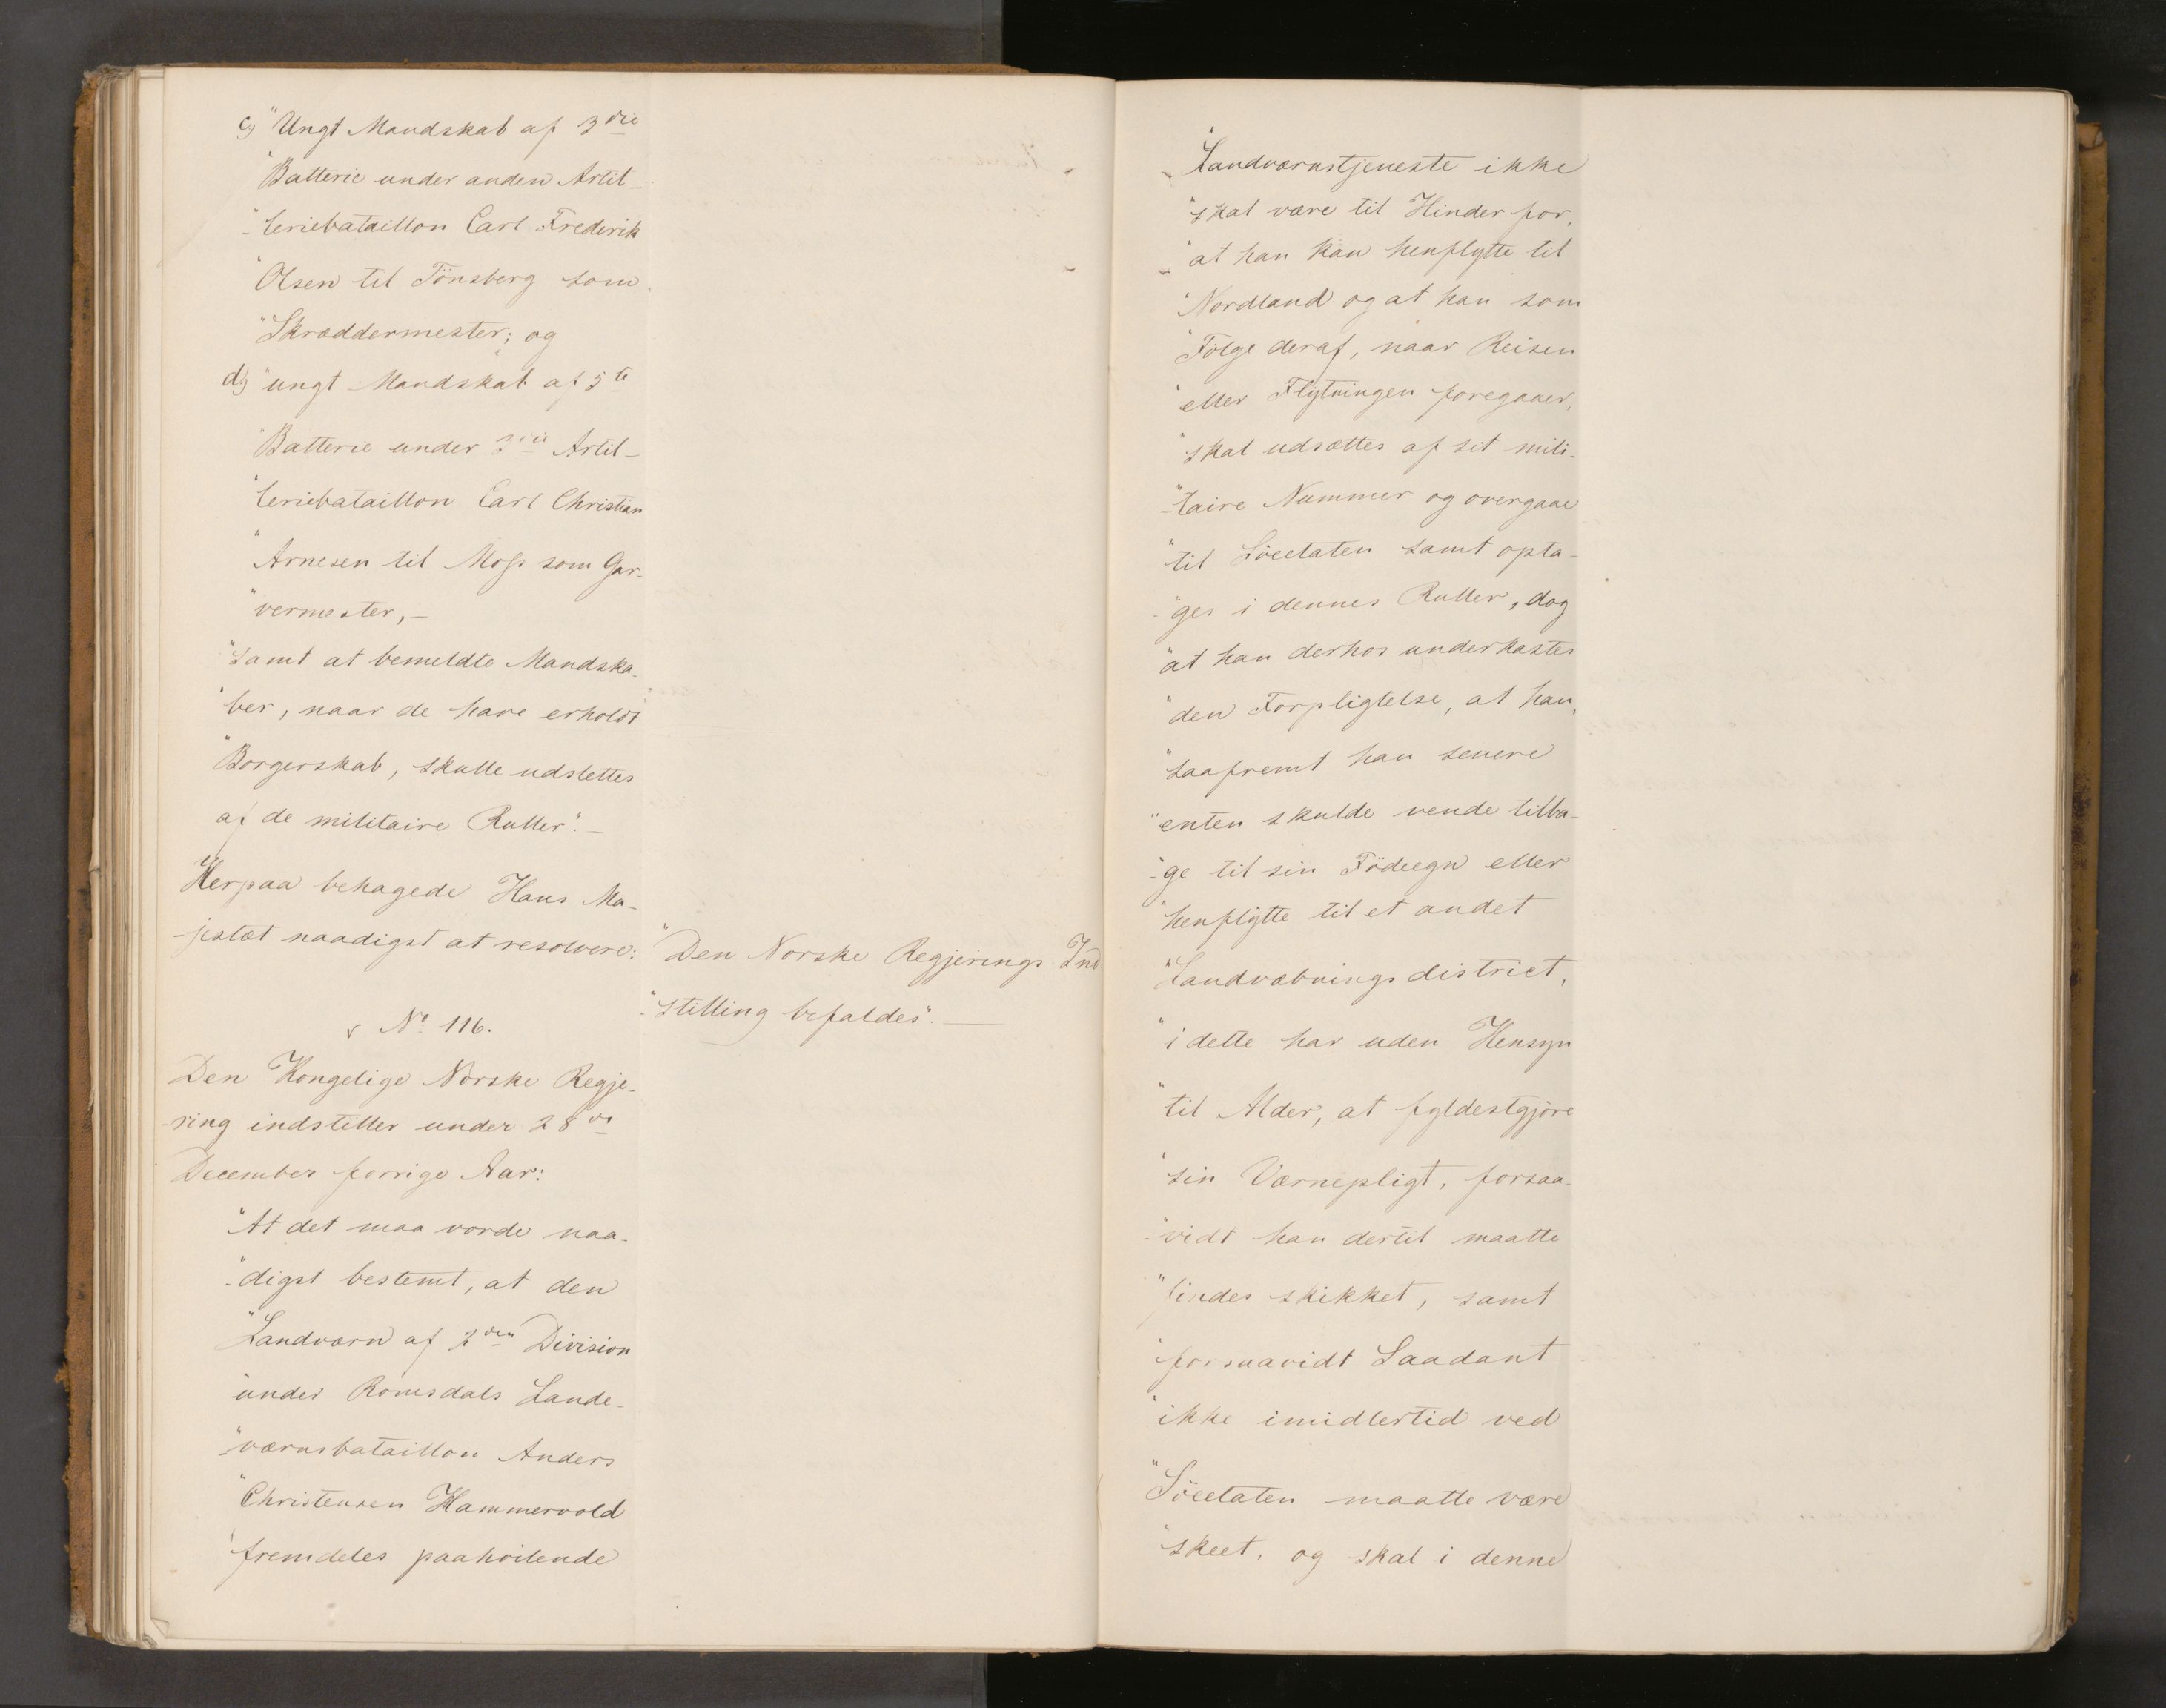 c) "Ungt Mandskab af 3die
"Batterie under anden Artil-
"-leriebataillon Carl Frederik
"Olsen til Tönsberg som
"Skræddermester; og
d) "ungt Mandskab af 5te
"Batterie under 3die Artil-
"leriebataillon Carl Christian
"Arnesen til Moss som Gar-
"vermester,-
"samt at bemeldte Mandska-
"ber, naar de have erholdt
"Borgerskab, skulle udslettes
af de militaire Ruller".-
Herpaa behagede Hans Ma-
-jestæt naadigst at resolvere:
"Den Norske Regjerings Ind-
"stilling befaldes".
No 116.
Den Kongelige Norske Regje-
-ring indstiller under 28de
December forrige Aar:
"At det maa vorde naa-
"-digst bestemt, at den
"Landværn af 2den Division
"under Romsdals Lande-
"-værnsbataillon Anders
"Christensen Hammervold
"fremdeles paahvilende
"Landværnstjeneste ikke
"skal være til Hinder for,
"at han kan henflytte til
"Nordland og at han som
"Fölge deraf, naar Reisen
"eller Flytningen foregaaer,
"skal udsættes af sit mili-
"-taire Nummer og overgaae
"til Söeetaten samt opta-
"-ges i dennes Ruller, dog
"at han derhos underkastes
"den Forpligtelse, at han,
"saafremt han senere
"enten skulde vende tilba-
"-ge til sin Födeegn eller
"henflytte til et andet
"Landvæbningsdistrict,
"i dette har uden Hensyn
"til Alder, at fyldestgjöre
"sin Værnepligt, forsaa-
"-vidt han dertil maatte
"findes skikket, samt
"forsaavidt Saadant
"ikke imidlertid ved
"Söeetaten maatte være
"skeet, og skal i denne